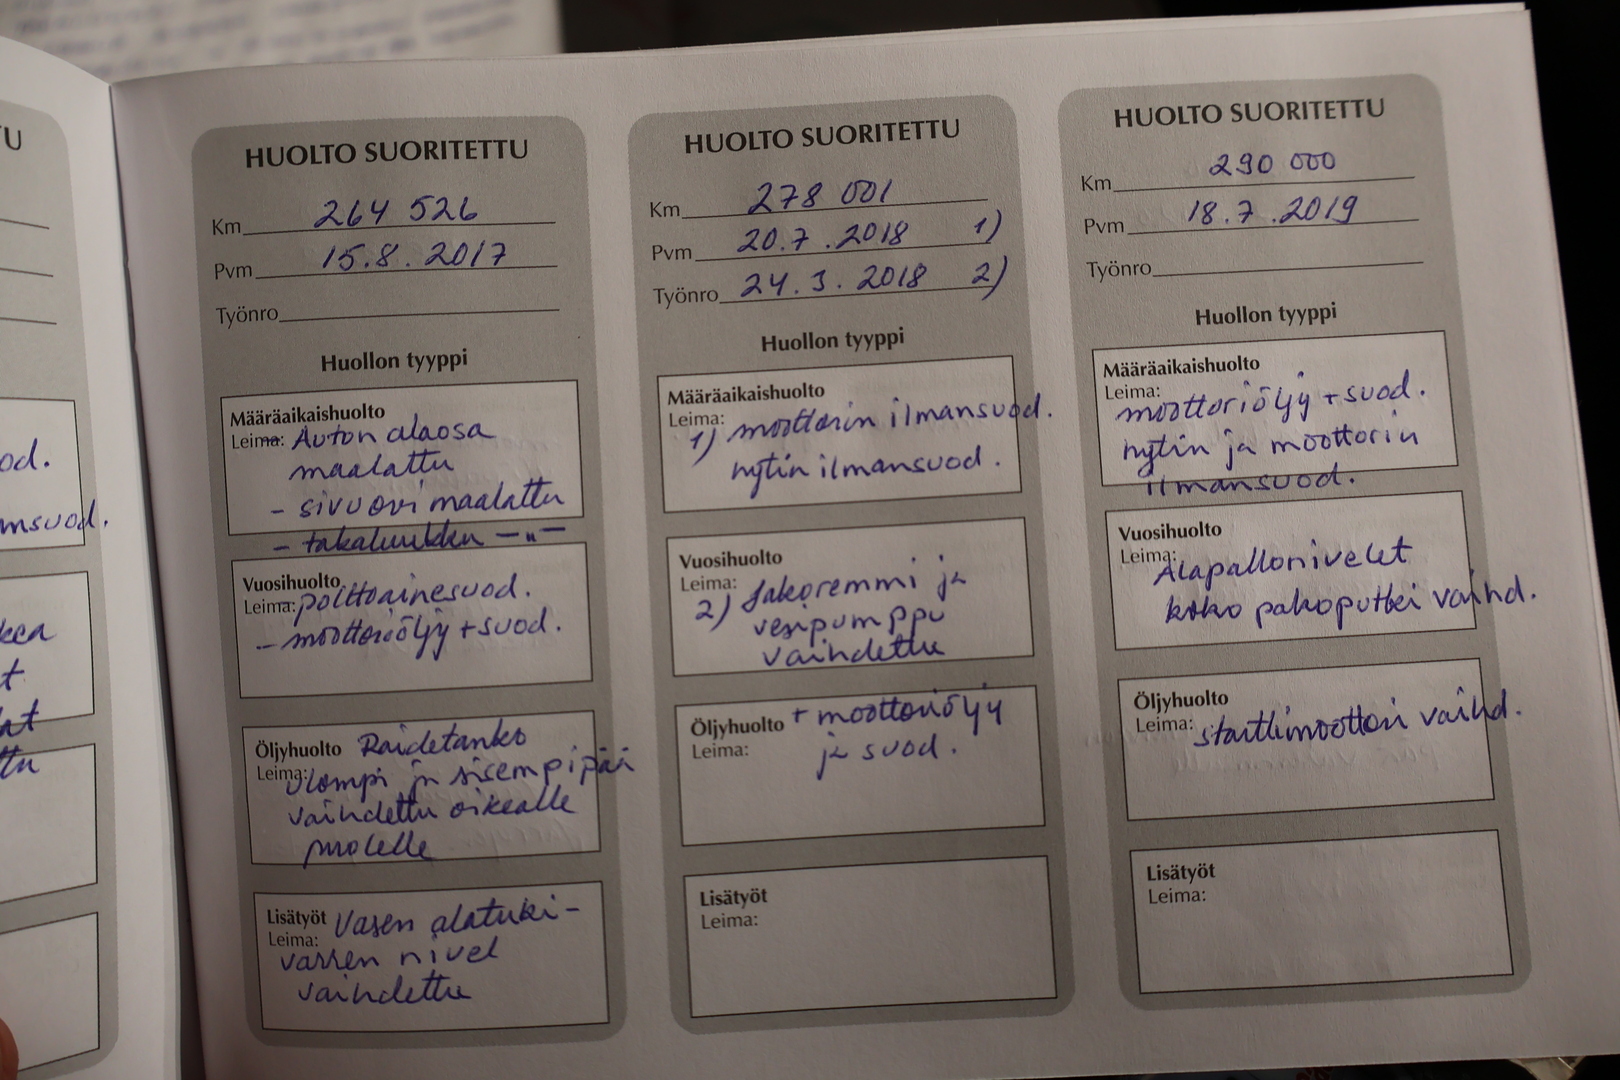 U
od.
msuod.
kea
t
tu
HUOLTO SUORITETTU
Km 264 526
Pvm 15.8.2017
Työnro
Huollon tyyppi
Määräaikaishuolto
Leima: Auton alaosa
maalattu
- sivuovi maalattu
- takaluukku —"—
Vuosihuolto
Leima: polttoainesuod.
- moottoriöljy + suod.
Öljyhuolto Raidetanko
Leima: Ulompi ja sisempi pää
vaihdettu oikealle
puolelle
Lisätyöt Vasen alatuki-
Leima:
varren nivel
vaihdettu
HUOLTO SUORITETTU
Km 278 001
Pvm 20.7.2018 1)
Työnro 24.3.2018 2)
Huollon tyyppi
Määräaikaishuolto
Leima:
1) moottorin ilmansuod.
hytin ilmansuod.
Vuosihuolto
Leima:
2) Jakoremmi ja
vesipumppu
vaihdettu
Öljyhuolto + moottoriöljy
Leima: ja suod.
Lisätyöt
Leima:
HUOLTO SUORITETTU
Km 290 000
Pvm 18.7.2019
Työnro
Huollon tyyppi
Määräaikaishuolto
Leima:
moottoriöljy + suod.
hytin ja moottorin
ilmansuod.
Vuosihuolto
Leima:
Alapallonivelet
koko pakoputki vaihd.
Öljyhuolto
Leima: starttimoottori vaihd.
Lisätyöt
Leima: